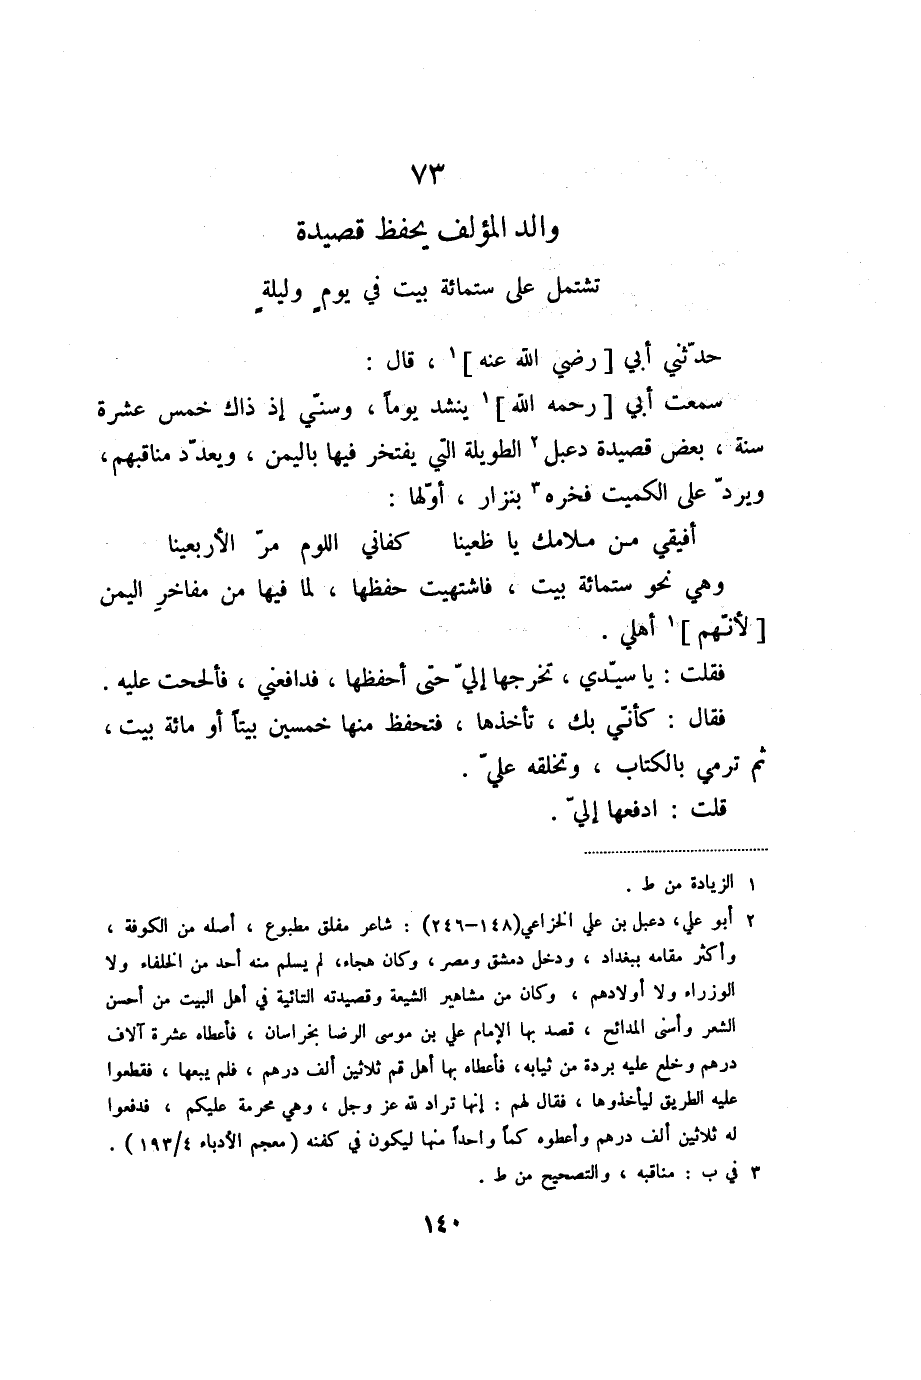 ٧٣
والد المؤلف يحفظ قصيدة
تشتمل على ستمائة بيت في يومٍ وليلةٍ
حدّثني أبي [ رضي الله عنه ]١ ، قال :
سمعت أبي [ رحمه الله ]١ ينشد يوماً ، وسنّي إذ ذاك خمس عشرة
سنة ، بعض قصيدة دعبل٢ الطويلة التي يفتخر فيها باليمن ، ويعدّد مناقبهم ،
ويردّ على الكميت فخره٣ بنزار ، أوّلها :
أفيقي من ملامك يا ظعينا كفاني اللوم مرّ الأربعينا
وهي نحو ستمائة بيت ، فاشتهيت حفظها ، لما فيها من مفاخرِ اليمن
[ لأنّهم ]١ أهلي .
فقلت : يا سيّدي ، تخرجها إليّ حتى أحفظها ، فدافعني ، فألححت عليه .
فقال : كأنّي بك ، تأخذها ، فتحفظ منها خمسين بيتاً أو مائة بيت ،
ثم ترمي بالكتاب ، وتخلقه عليّ .
قلت : ادفعها إليّ .
١ الزيادة من ط .
٢ أبو علي ، دعبل بن علي الخزاعي (١٤٨–٢٤٦) : شاعر مفلق مطبوع ، أصله من الكوفة ،
وأكثر مقامه ببغداد ، ودخل دمشق ومصر ، وكان هجاء ، لم يسلم منه أحد من الخلفاء ولا
الوزراء ولا أولادهم ، وكان من مشاهير الشيعة وقصيدته التائية في أهل البيت من أحسن
الشعر وأسنى المدائح ، قصد بها الإمام علي بن موسى الرضا بخراسان ، فأعطاه عشرة آلاف
درهم وخلع عليه بردة من ثيابه ، فأعطاه بها أهل قم ثلاثين ألف درهم ، فلم يبعها ، فقطعوا
عليه الطريق ليأخذوها ، فقال لهم : إنها تراد لله عز وجل ، وهي محرمة عليكم ، فدفعوا
له ثلاثين ألف درهم وأعطوه كماً واحداً منها ليكون في كفنه ( معجم الأدباء ١٩٣/٤ ) .
٣ في ب : مناقبه ، والتصحيح من ط .
١٤٠